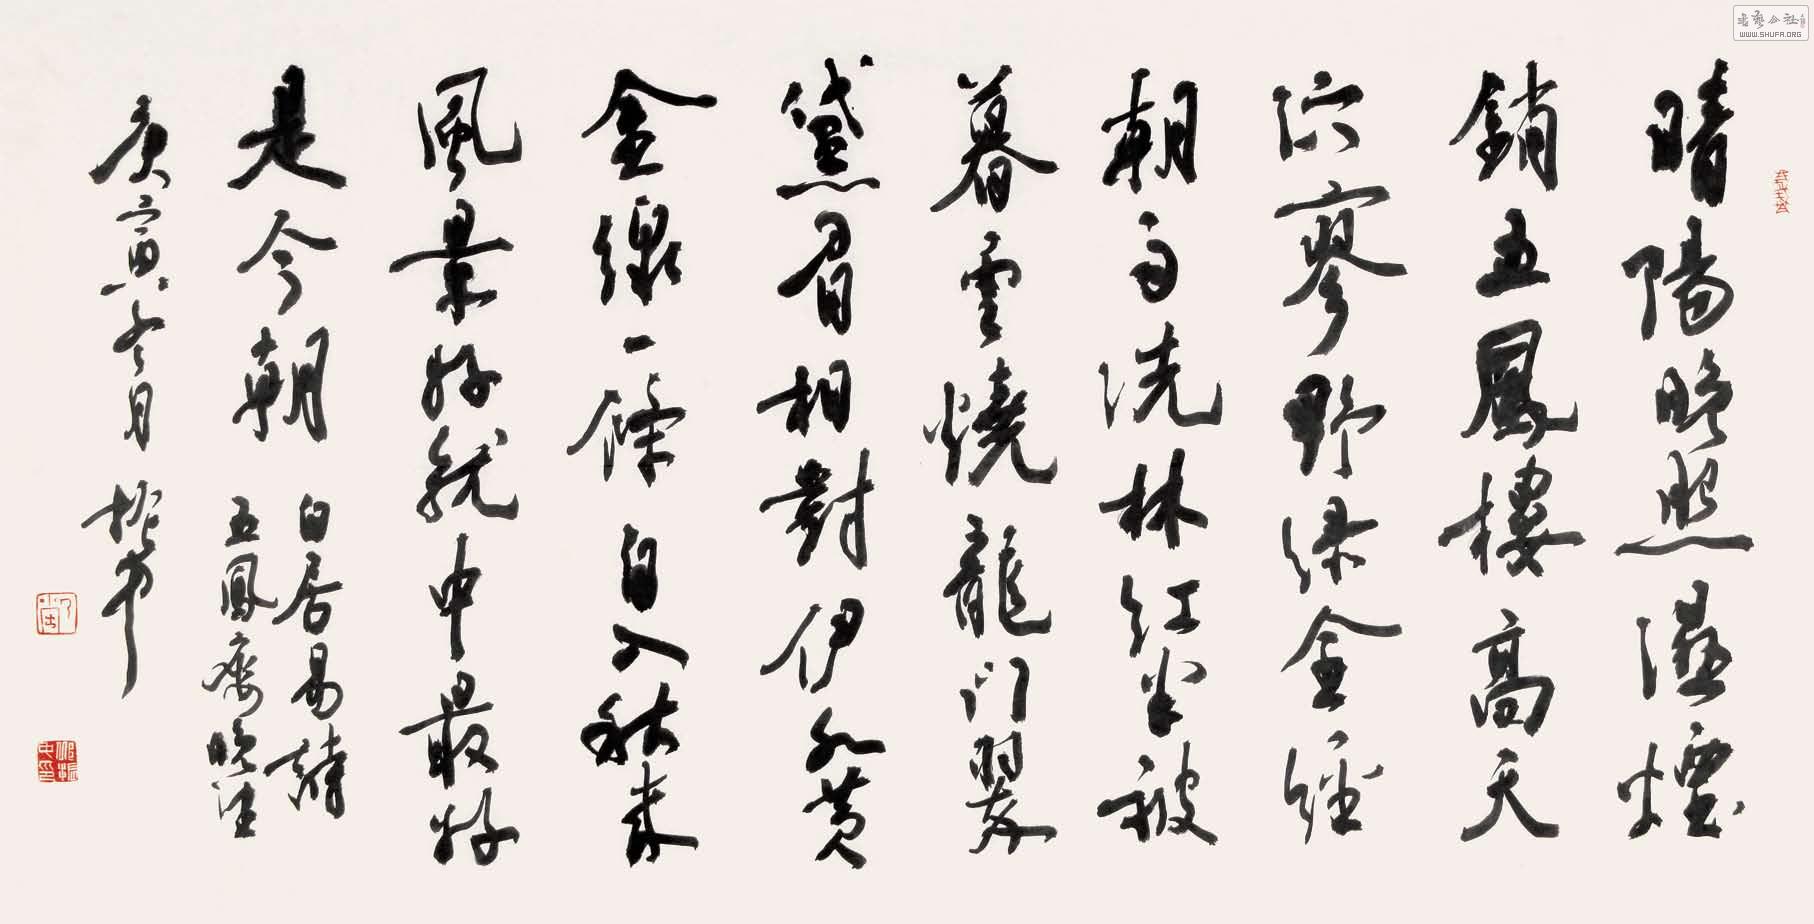 晴陽晚照濕煙
銷五鳳樓高天
泬寥野綠全經
朝雨洗林紅半被
暮雲燒龍门翠
黛眉相對伊水黃
金線一條自入秋來
風景好就中最好
是今朝
白居易詩
五鳳樓晚望
庚寅冬月 振中
WWW.SHUFA.ORG